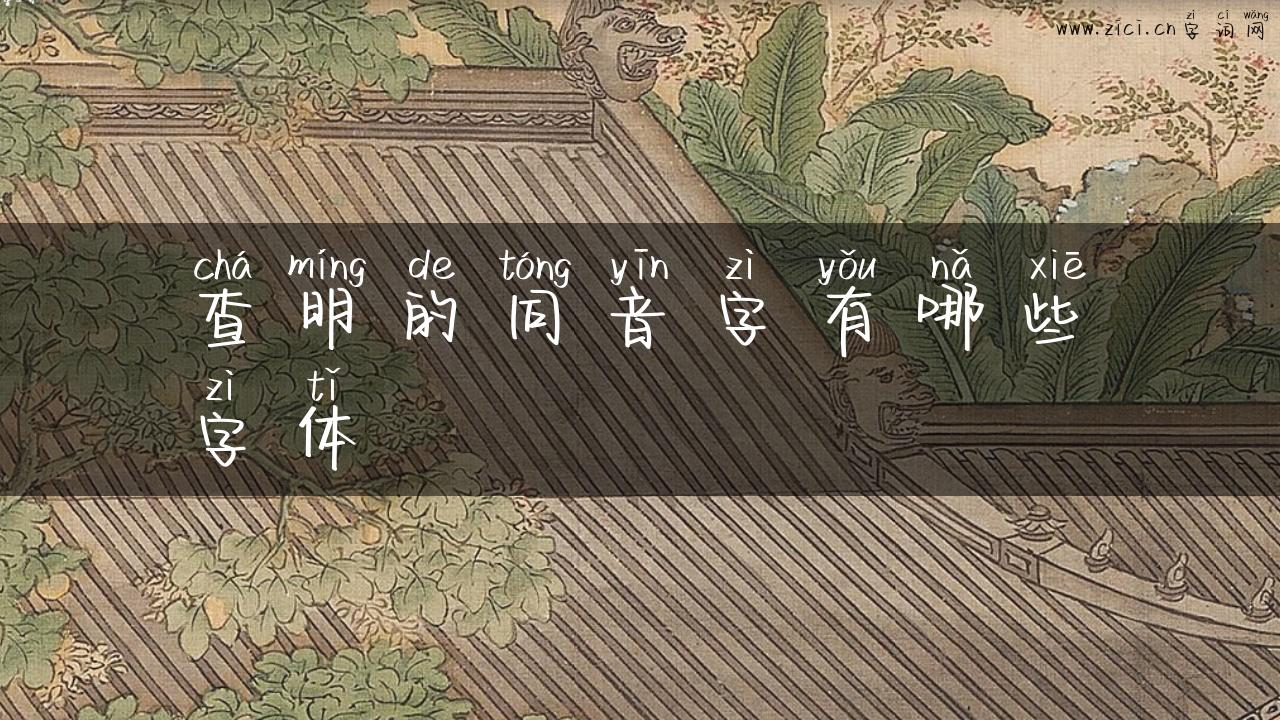 zì cí wǎng
www.zici.cn 字词网
chá míng de tóng yīn zì yǒu nǎ xiē
查明的同音字有哪些
zì tǐ
字体